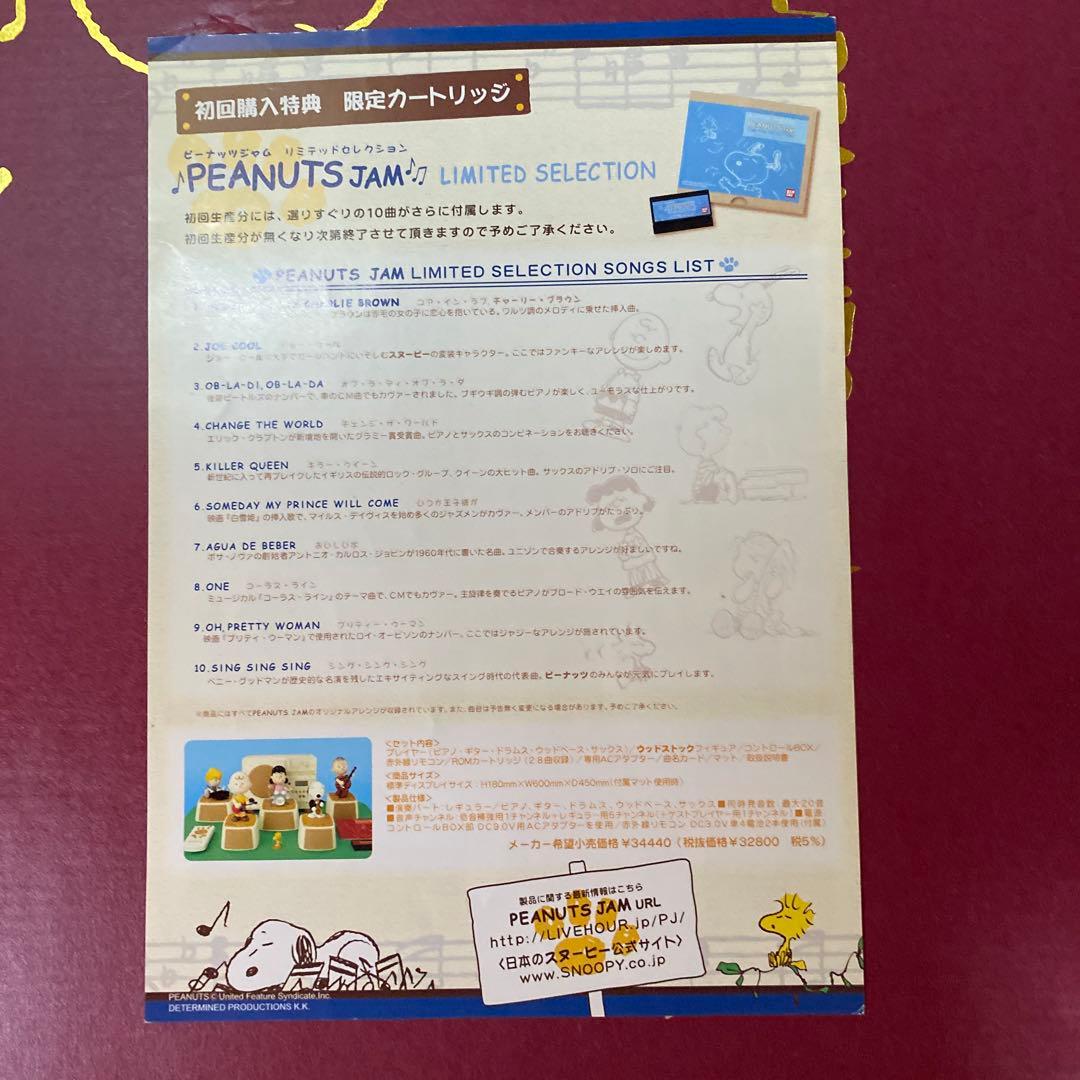 初回購入特典 限定カートリッジ
ピーナッツジャム リミテッドセレクション
PEANUTS JAM LIMITED SELECTION
初回生産分には、選りすぐりの10曲がさらに付属します。
初回生産分が無くなり次第終了させて頂きますので予めご了承ください。
PEANUTS JAM LIMITED SELECTION SONGS LIST
CHARLIE BROWN コア・イン・ラブ、チャーリー・ブラウン
ブラウンは赤毛の女の子に恋心を抱いている。ワルツ調のメロディに乗せた挿入曲。
2.JOE COOL
スヌーピーの変装キャラクター。ここではファンキーなアレンジが楽しめます。
3.OB-LA-DI, OB-LA-DA オブ・ラ・ディ・オブ・ラ・ダ
後期ビートルズのナンバーで、車のCM曲でもカヴァーされました。ブギウギ調の弾むピアノが楽しく、ユーモラスな仕上がりです。
4.CHANGE THE WORLD チェンジ・ザ・ワールド
エリック・クラプトンが新境地を開いたグラミー賞受賞曲。ピアノとサックスのコンビネーションをお聴きください。
5.KILLER QUEEN キラー・クイーン
新世紀に入って再ブレイクしたイギリスの伝説的ロック・グループ、クイーンの大ヒット曲。サックスのアドリブ・ソロにご注目。
6.SOMEDAY MY PRINCE WILL COME いつか王子様が
映画『白雪姫』の挿入歌で、マイルス・デイヴィスを始め多くのジャズメンがカヴァー。メンバーのアドリブがたっぷり。
7.AGUA DE BEBER おいしい水
ボサ・ノヴァの創始者アントニオ・カルロス・ジョビンが1960年代に書いた名曲。ユニゾンで合奏するアレンジが好ましいですね。
8.ONE コーラス・ライン
ミュージカル『コーラス・ライン』のテーマ曲で、CMでもカヴァー。主旋律を奏でるピアノがブロード・ウエイの雰囲気を伝えます。
9.OH, PRETTY WOMAN プリティー・ウーマン
映画『プリティ・ウーマン』で使用されたロイ・オービソンのナンバー。ここではジャジーなアレンジが施されています。
10.SING SING SING シング・シング・シング
ベニー・グッドマンが歴史的な名演を残したエキサイティングなスイング時代の代表曲。ピーナッツのみんなが元気にプレイします。
※商品にはすべてPEANUTS JAMのオリジナルアレンジが収録されています。また、曲目は予告無く変更になる場合があります。予めご了承ください。
<セット内容>
プレイヤー(ピアノ・ギター・ドラムス・ウッドベース・サックス)/ウッドストックフィギュア/コントロールBOX/
赤外線リモコン/ROMカートリッジ(28曲収録)/専用ACアダプター/曲名カード/マット/取扱説明書
<商品サイズ>
標準ディスプレイサイズ:H180mm×W600mm×D450mm(付属マット使用時)
<製品仕様>
■演奏パート:レギュラー/ピアノ、ギター、ドラムス、ウッドベース、サックス■同時発音数:最大20音
■音声チャンネル:低音補強用1チャンネル+レギュラー用5チャンネル(+ゲストプレイヤー用1チャンネル)■電源:
コントロールBOX部 DC9.0V用ACアダプターを使用/赤外線リモコン DC3.0V単4電池2本使用(付属)
メーカー希望小売価格¥34440(税抜価格¥32800 税5%)
製品に関する最新情報はこちら
PEANUTS JAM URL
http://LIVEHOUR.jp/PJ/
〈日本のスヌーピー公式サイト〉
www.SNOOPY.co.jp
PEANUTS © United Feature Syndicate, Inc.
DETERMINED PRODUCTIONS K.K.